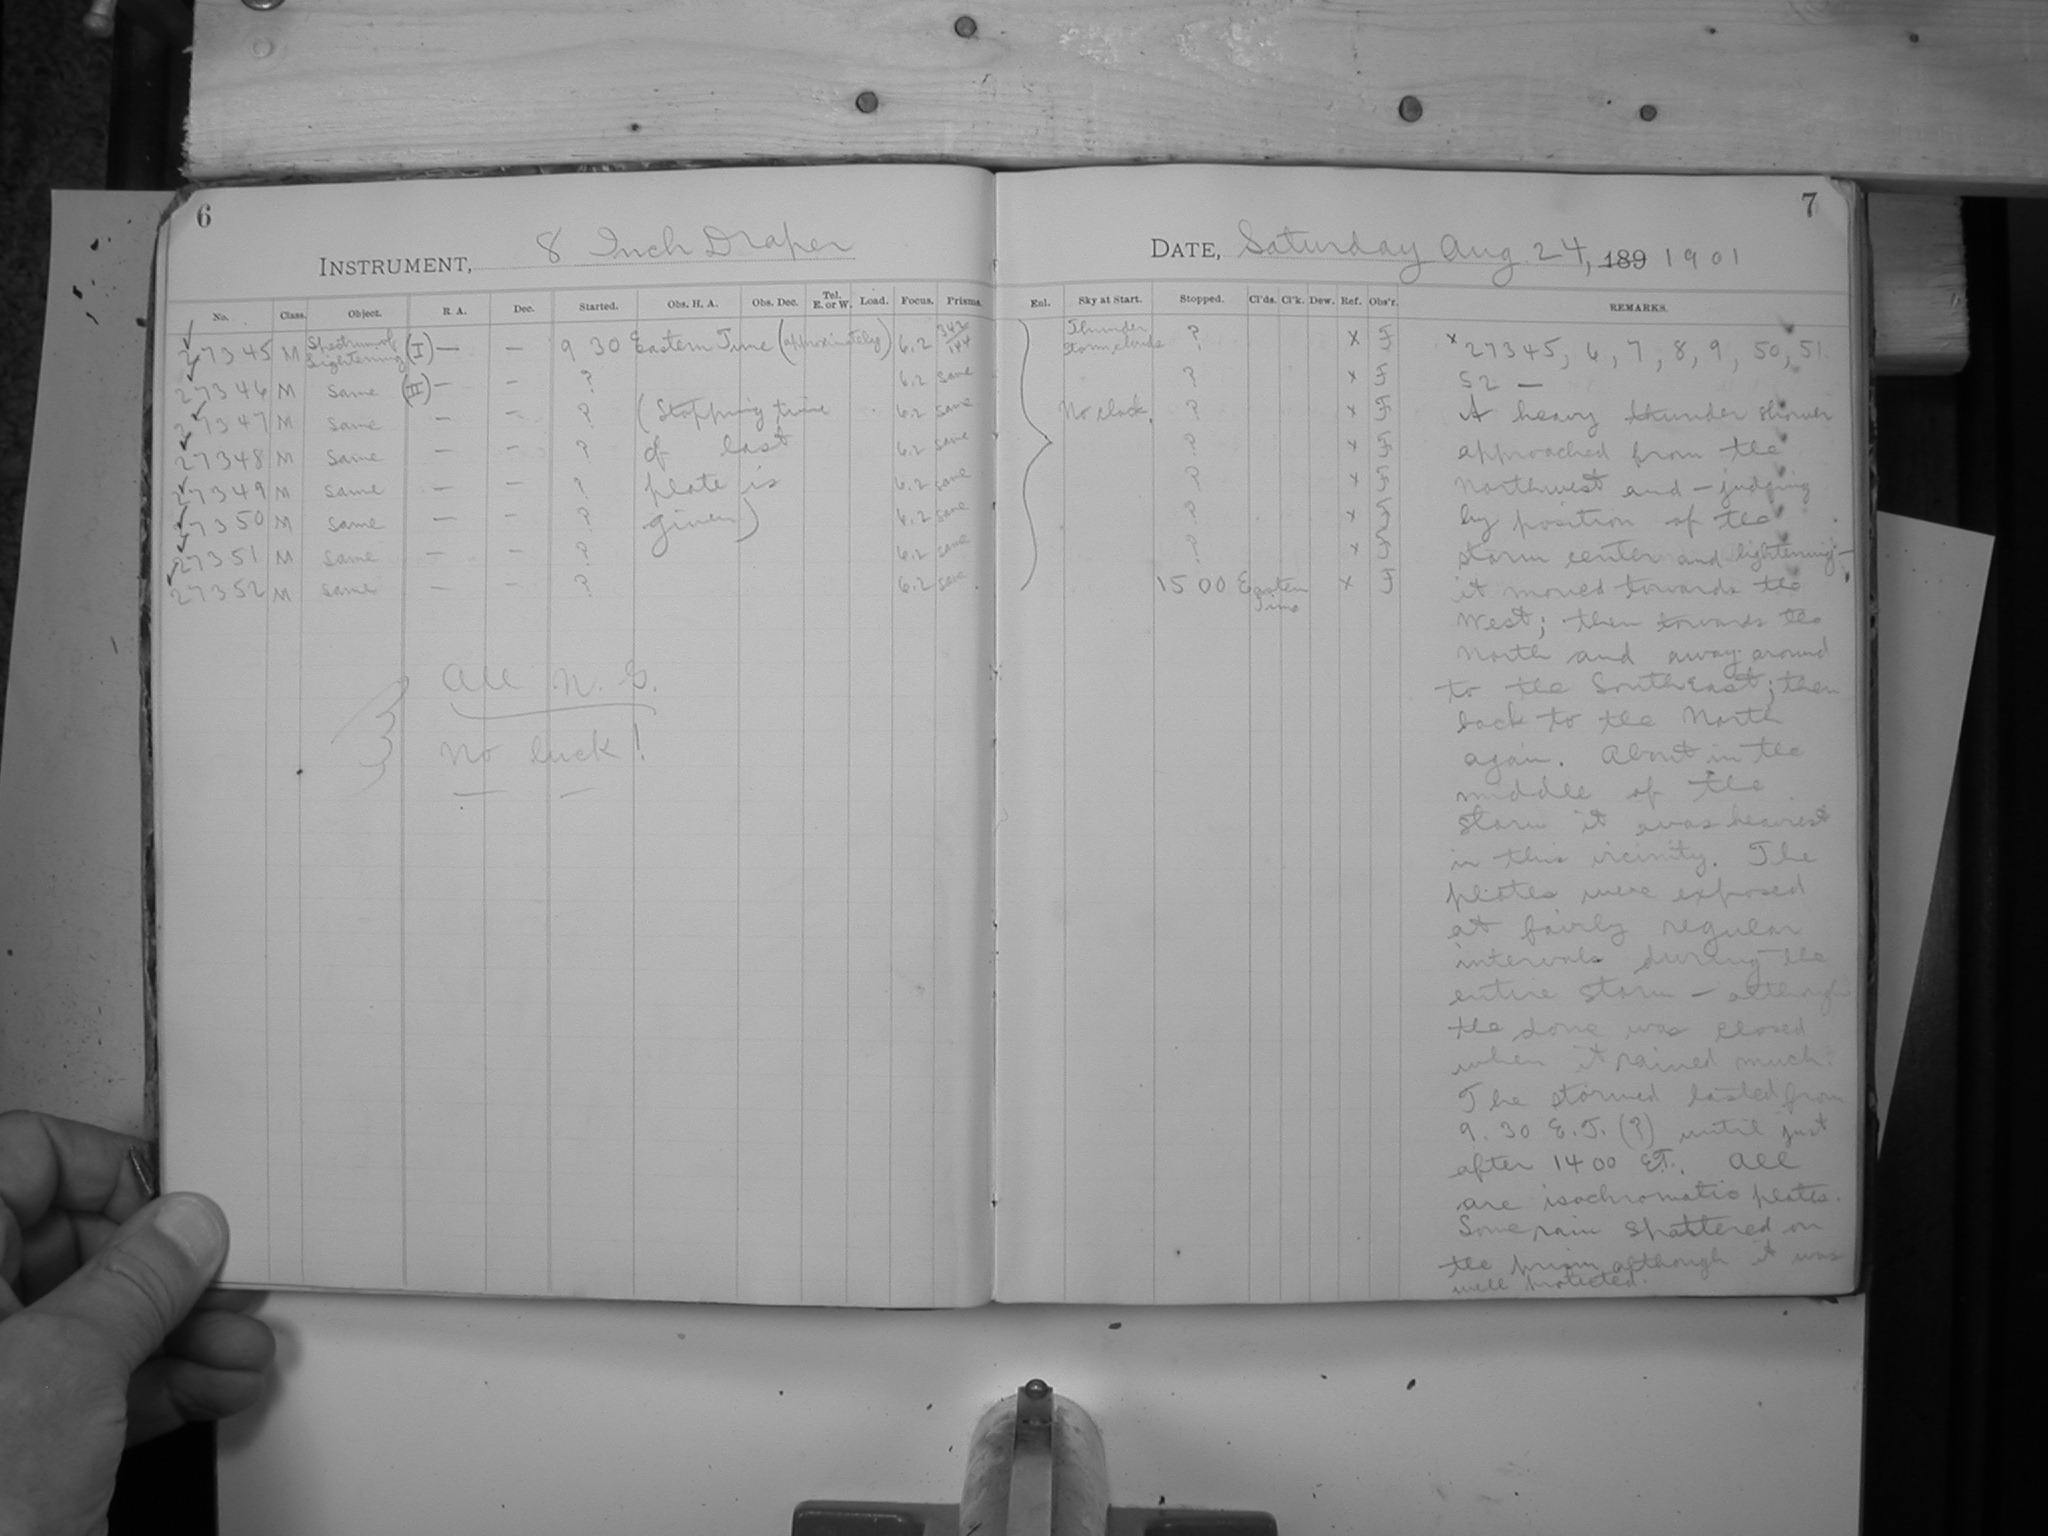 6
INSTRUMENT, 8 Inch Draper
No. Class. Object. R. A. Dec. Started. Obs. H. A. Obs. Dec. Tel. E. or W. Load. Focus. Prisms.
27345 M Spectrum of Lightening (I) — — 9 30 Eastern Time (approximately) 6.2 342/144
27346 M same (II) — — ? 6.2 same
27347 M same — — ? (Stopping time 6.2 same
27348 M same — — ? of last 6.2 same
27349 M same — — ? plate is 6.2 same
27350 M same — — ? given) 6.2 same
27351 M same — — ? 6.2 same
27352 M same — — ? 6.2 same
All N. G.
No luck!
7
DATE, Saturday Aug. 24, 189 1901
Enl. Sky at Start. Stopped. Cl'ds. Cl'k. Dew. Ref. Obs'r. REMARKS.
Thunder storm, clouds ? x F
? x F
No clock. ? x F
? x F
? x F
? x F
? x F
15 00 Eastern Time x F
x 27345, 6, 7, 8, 9, 50, 51.
52 —
A heavy thunder shower
approached from the
Northwest and — judging
by position of the
storm center and lightening —
it moved towards the
West; then towards the
North and away around
to the South East; then
back to the North
again. About in the
middle of the
storm it was heaviest
in this vicinity. The
plates were exposed
at fairly regular
intervals during the
entire storm — although
the dome was closed
when it rained much.
The stormed lasted from
9.30 E.T. (?) until just
after 1400 E.T. All
are isochromatic plates.
Some rain spattered on
the prism although it was
well protected.